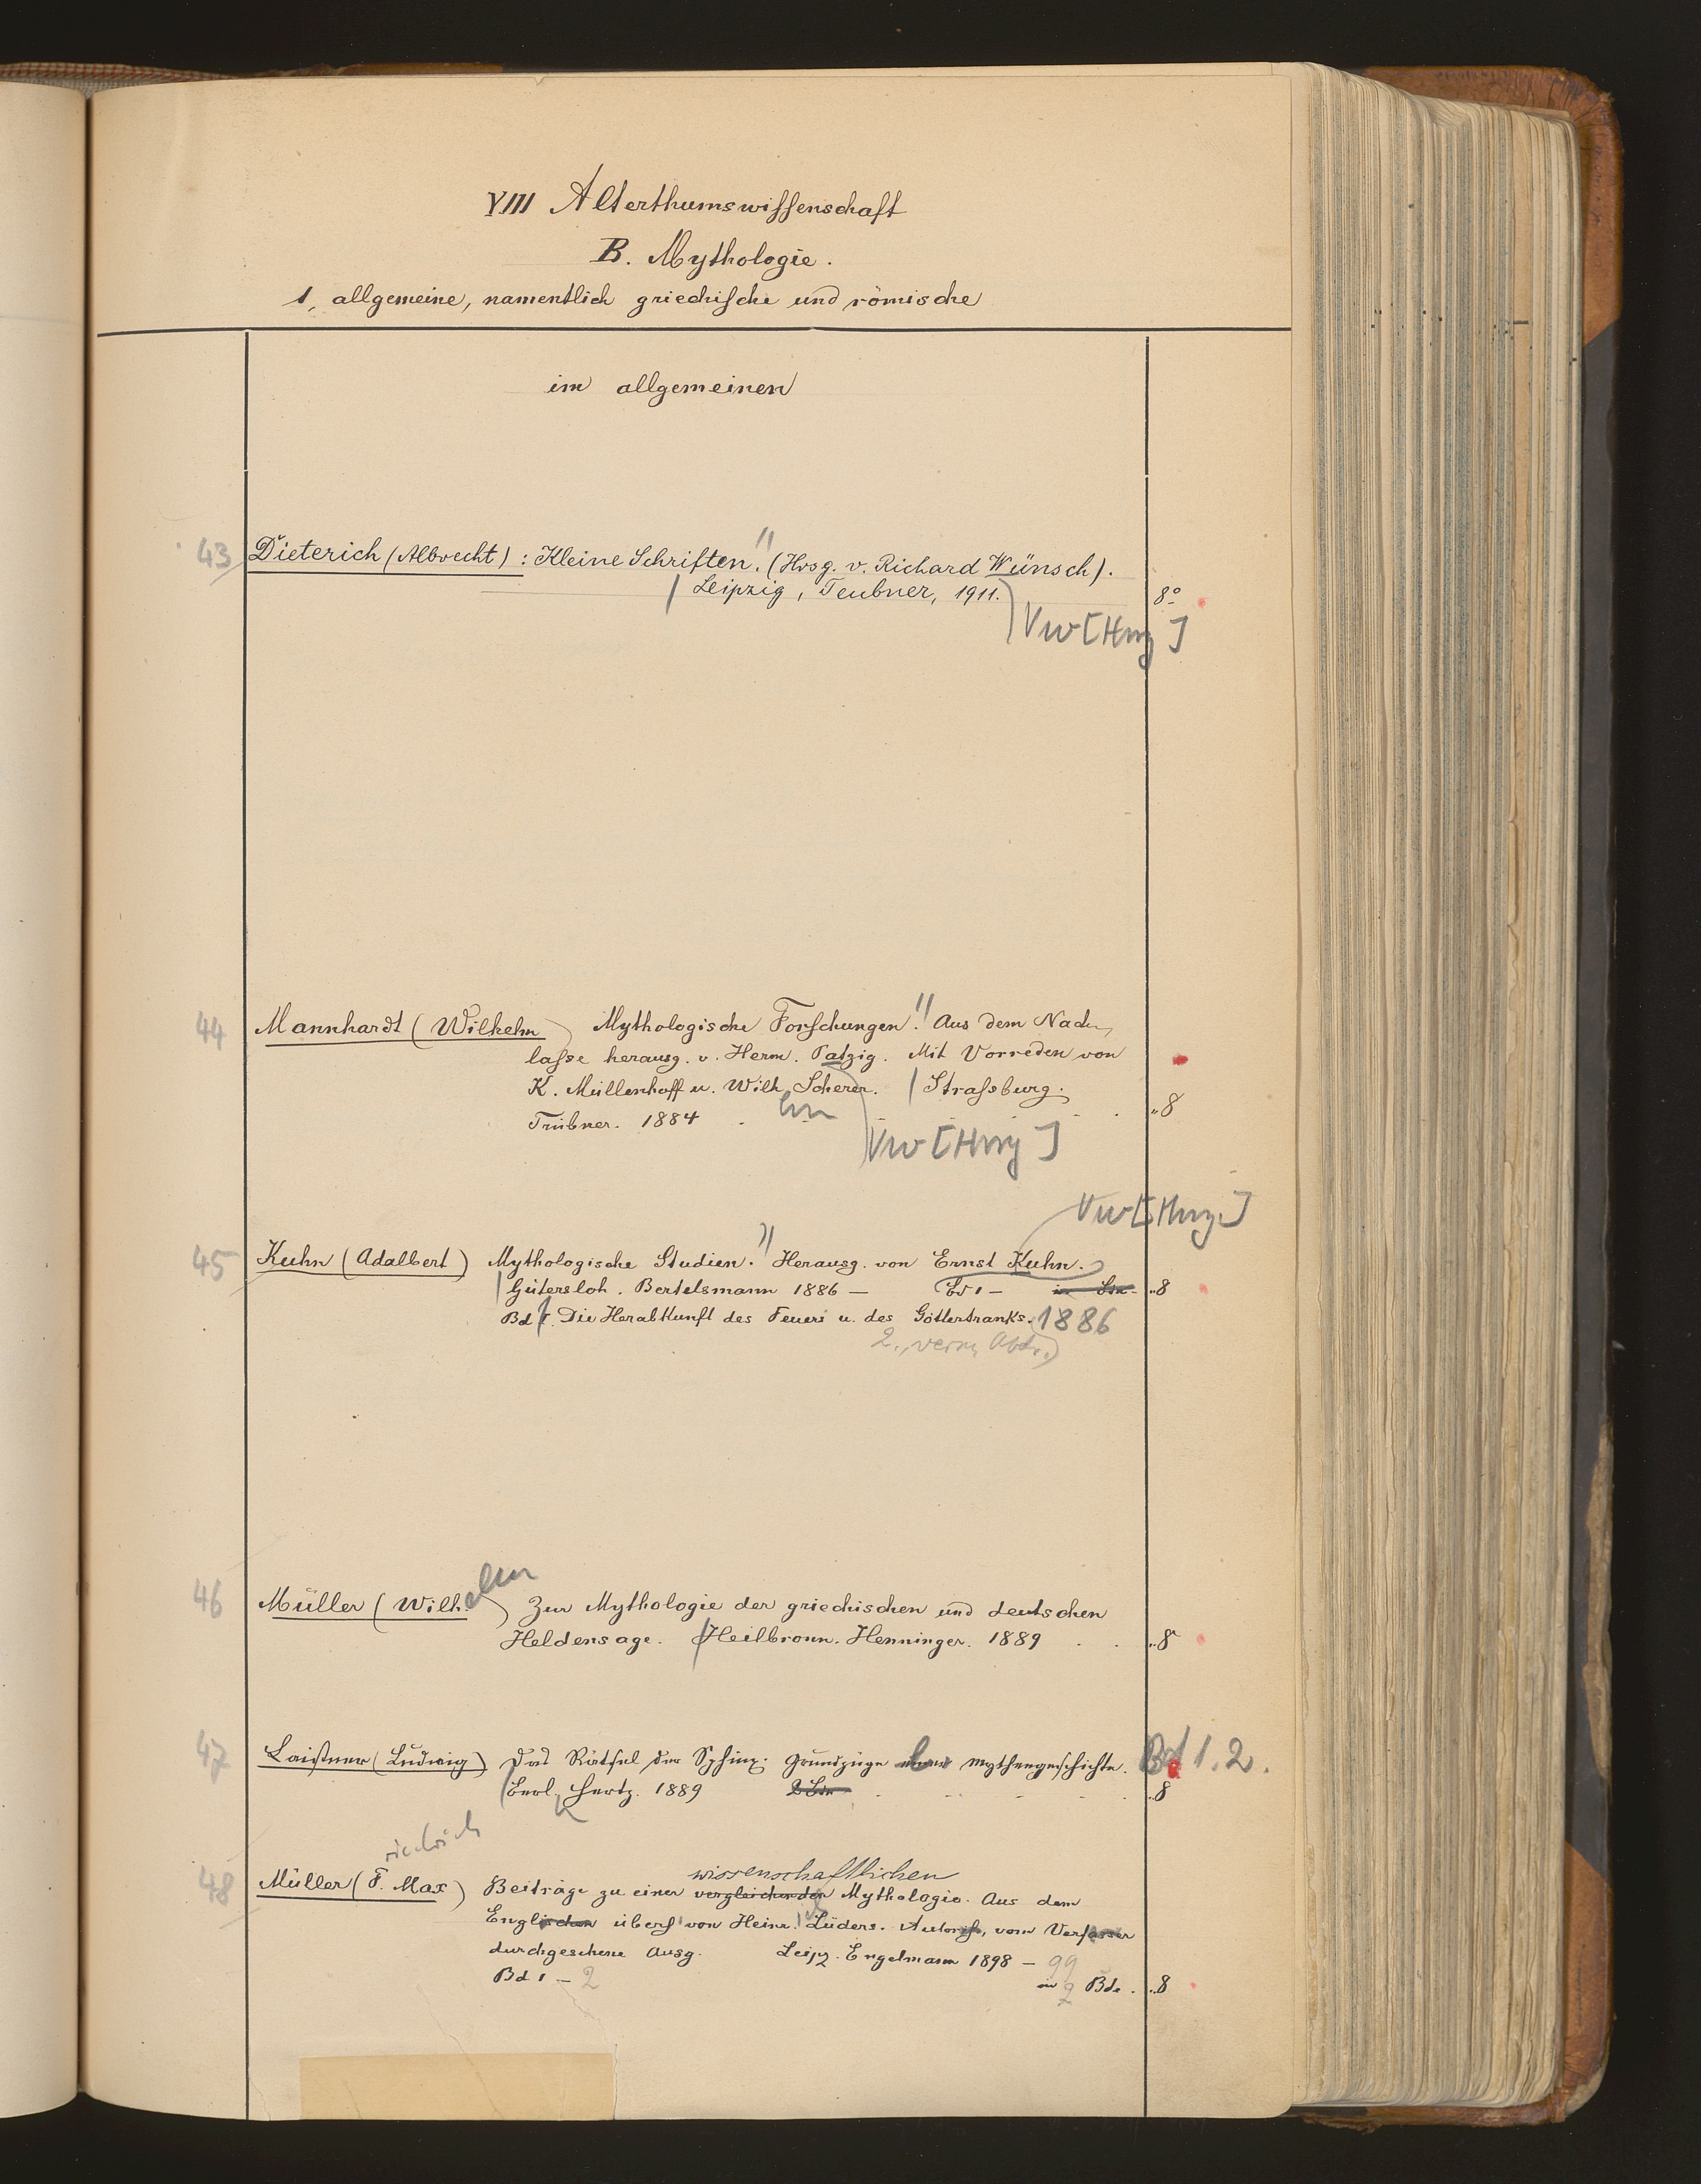 VIII Alterthumswissenschaft
B. Mythologie.
1, allgemeine, namentlich griechische und römische
im allgemeinen
43 Dieterich (Albrecht): Kleine Schriften. (Hrsg. v. Richard Wünsch).
Leipzig, Teubner, 1911. 8°
Vw [Hrsg]
44 Mannhardt (Wilhelm) Mythologische Forschungen. Aus dem Nach-
lasse herausg. v. Herm. Patzig. Mit Vorreden von
K. Müllenhoff u. Wilh. Scherer. Strassburg.
Trübner. 1884 "8
Vw [Hrsg]
Vw [Hrsg.]
45 Kuhn (Adalbert) Mythologische Studien. Herausg. von Ernst Kuhn.
Gütersloh. Bertelsmann 1886 — Bd 1 — "8
Bd 1. Die Herabkunft des Feuers u. des Göttertranks. 1886
2., verm. Abdr.)
46 Müller (Wilhelm) Zur Mythologie der griechischen und deutschen
Heldensage. Heilbronn. Henninger. 1889 "8
47 Laistner (Ludwig) Das Rätsel der Sphinx. Grundzüge einer Mythengeschichte. Bd 1. 2.
Berl. Hertz. 1889 2 Bde "8
riedrich
wissenschaftlichen
48 Müller (F. Max) Beiträge zu einer vergleichenden Mythologie. Aus dem
Englischen übers. von Heinr. Lüders. Autoris., vom Verfasser
durchgesehene Ausg. Leipz. Engelmann 1898 — 99
Bd 1 — 2 in 2 Bde. "8